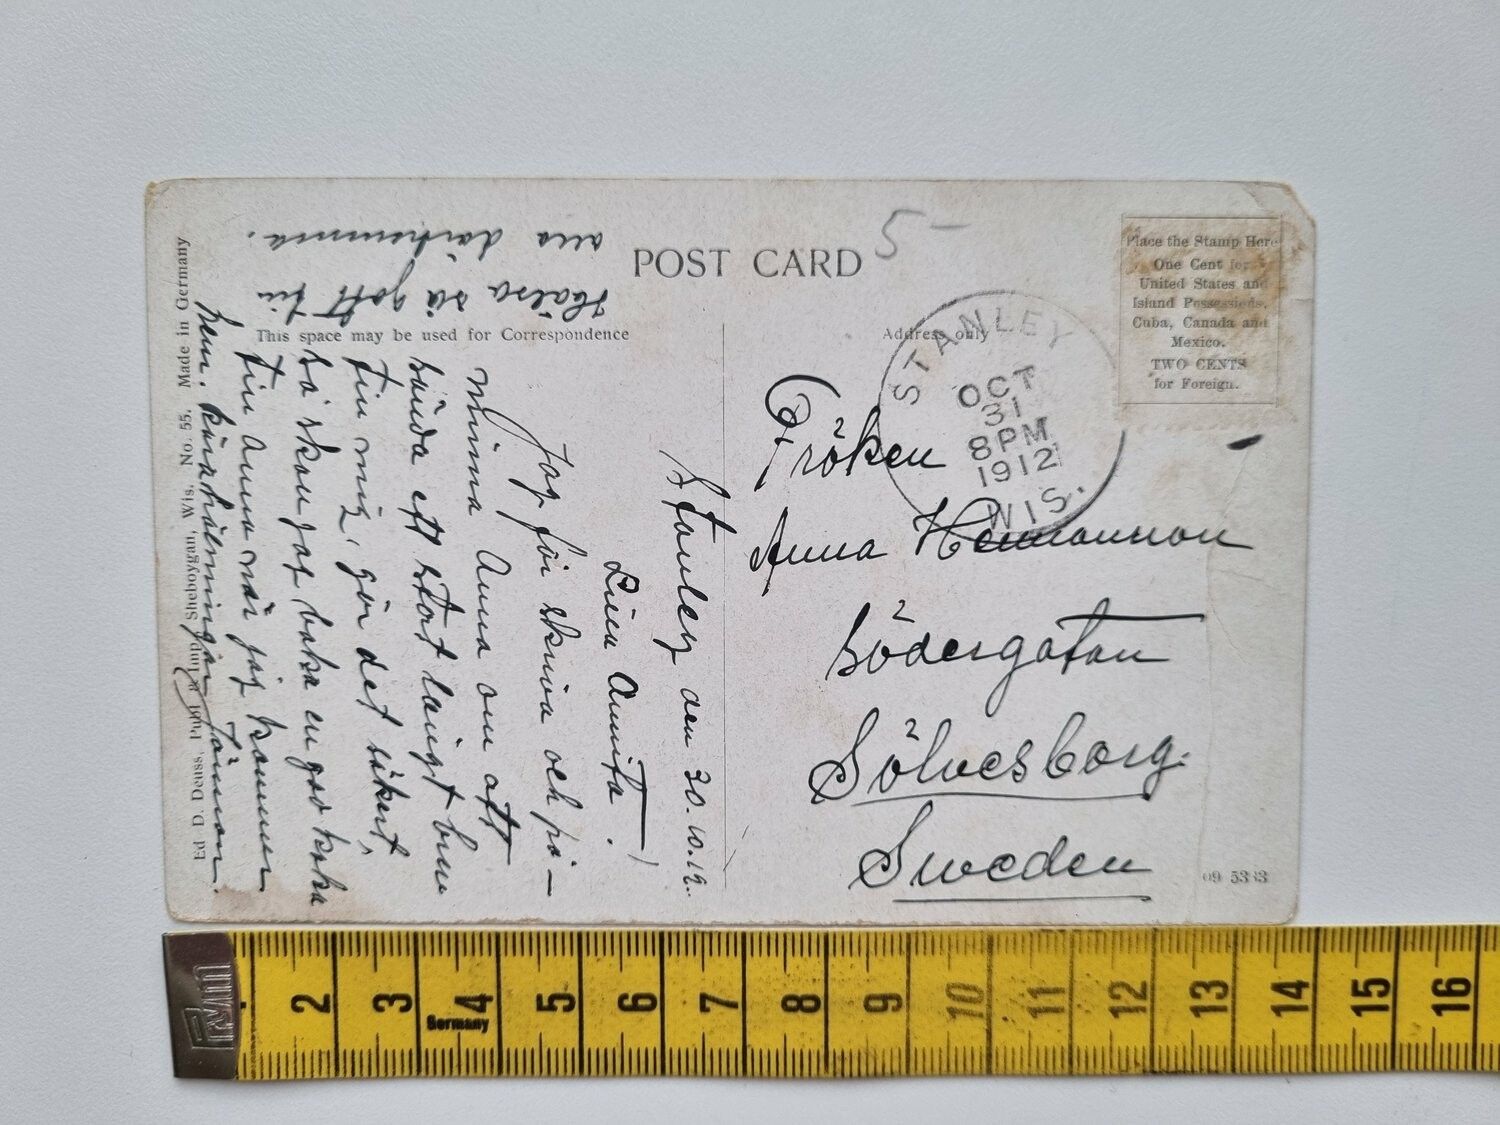 POST CARD
5-
This space may be used for Correspondence
Address only
Place the Stamp Here
One Cent for
United States and
Island Possessions,
Cuba, Canada and
Mexico.
TWO CENTS
for Foreign.
STANLEY
OCT
31
8 PM
1912
WIS.
Stanley den 30.10.12.
Lilla Annita!
Jag får skriva och på-
minna Anna om att
sända ett stort langt brev
till mig, gör det säkert,
så skall jag baka en god kaka
till Anna när jag kommer
hem. Kära hälsningar
Hälsa så gott till
alla därhemma.
Fröken
Anna Hermansson
Södergatan
Sölvesborg.
Sweden
Ed. D. Deuss, Publ. & Imp., Sheboygan, Wis. No. 55. Made in Germany
09 5383
Germany
1 2 3 4 5 6 7 8 9 10 11 12 13 14 15 16